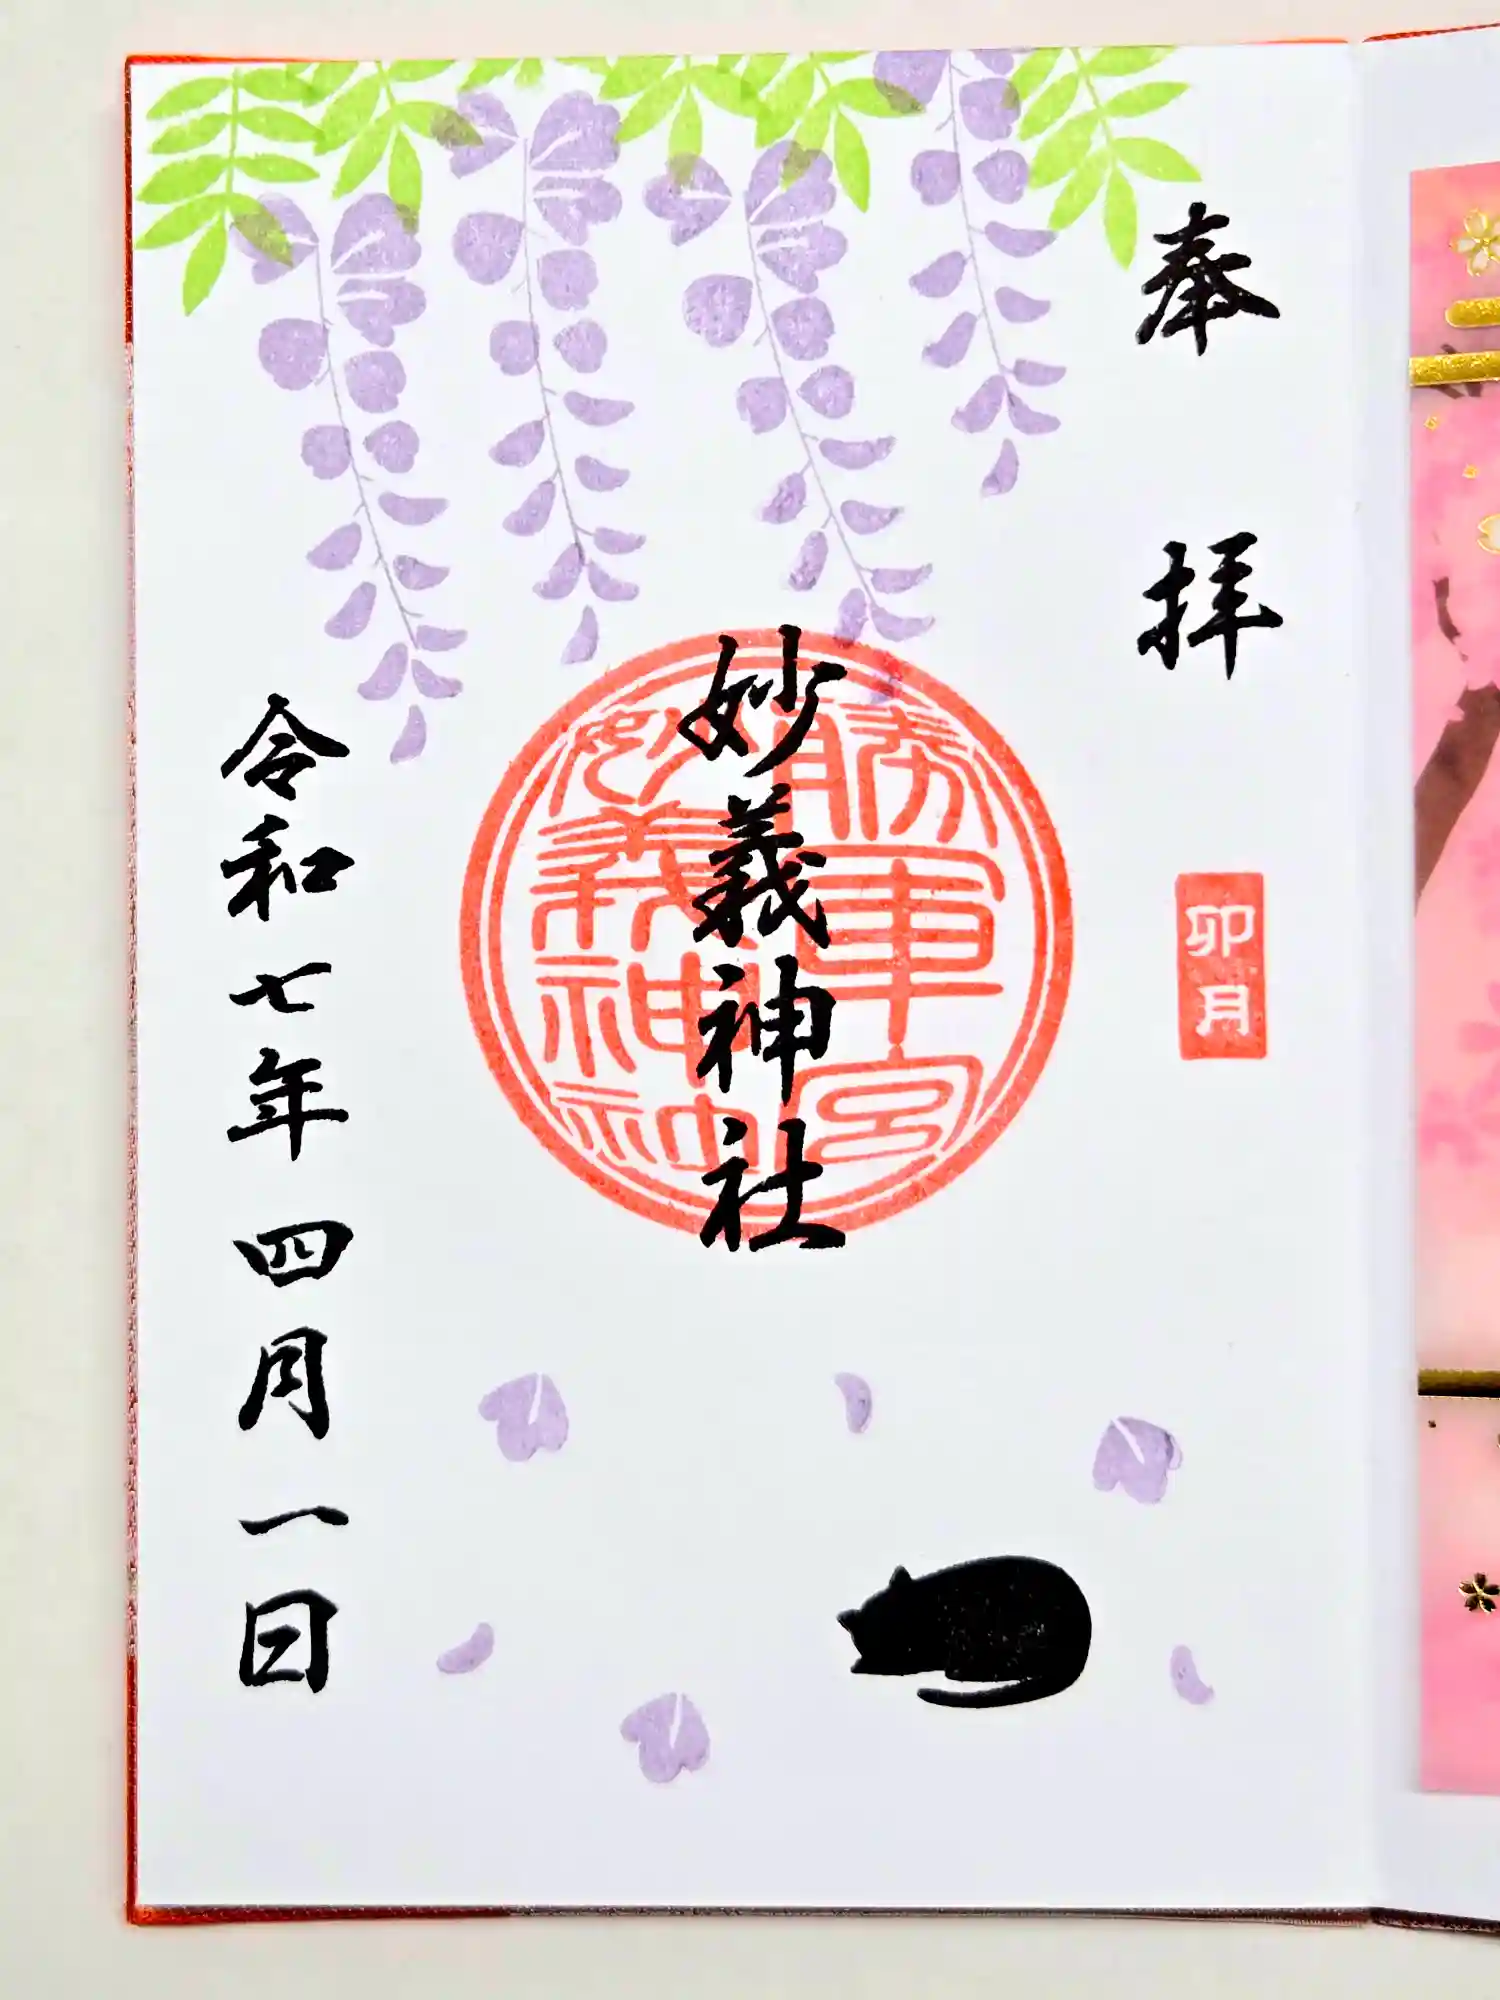 奉拝
卯月
妙義神社
勝軍宮
妙義神社
令和七年四月一日